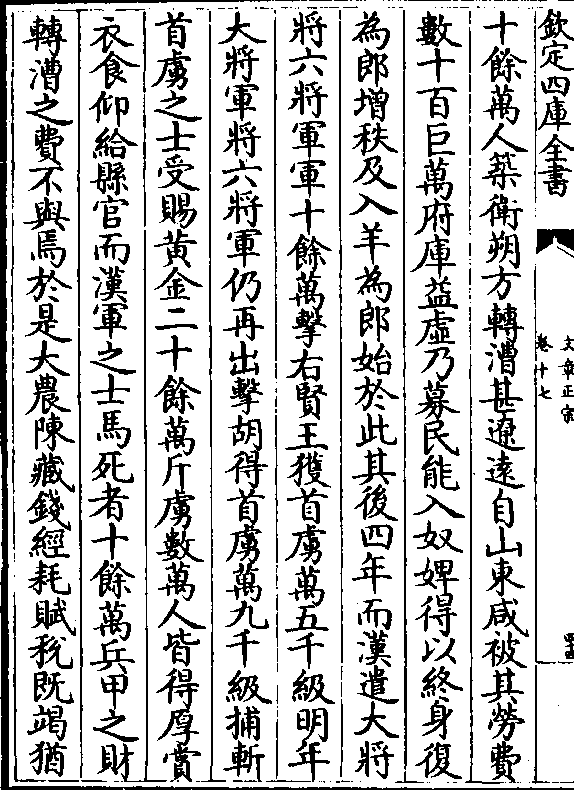 欽定四庫全書
文章正宗
卷十七
十餘萬人築衛朔方轉漕甚遼逺自山東咸被其勞費
數十百巨萬府庫益虛乃募民能入奴婢得以終身復
為郎增秩及入羊為郎始於此其後四年而漢遣大將
將六將軍軍十餘萬擊右賢王獲首虜萬五千級明年
大將軍將六將軍仍再出擊胡得首虜萬九千級捕斬
首虜之士受賜黃金二十餘萬斤虜數萬人皆得厚賞
衣食仰給縣官而漢軍之士馬死者十餘萬兵甲之財
轉漕之費不與焉於是大農陳藏錢經耗賦稅既竭猶